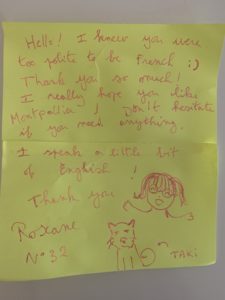 Hello! I knew you were
too polite to be French :)
Thank you so much!
I really hope you like
Montpellier! Don't hesitate
if you need anything.
I speak a little bit
of English!
Thank you
Roxane
N°32
TAKI